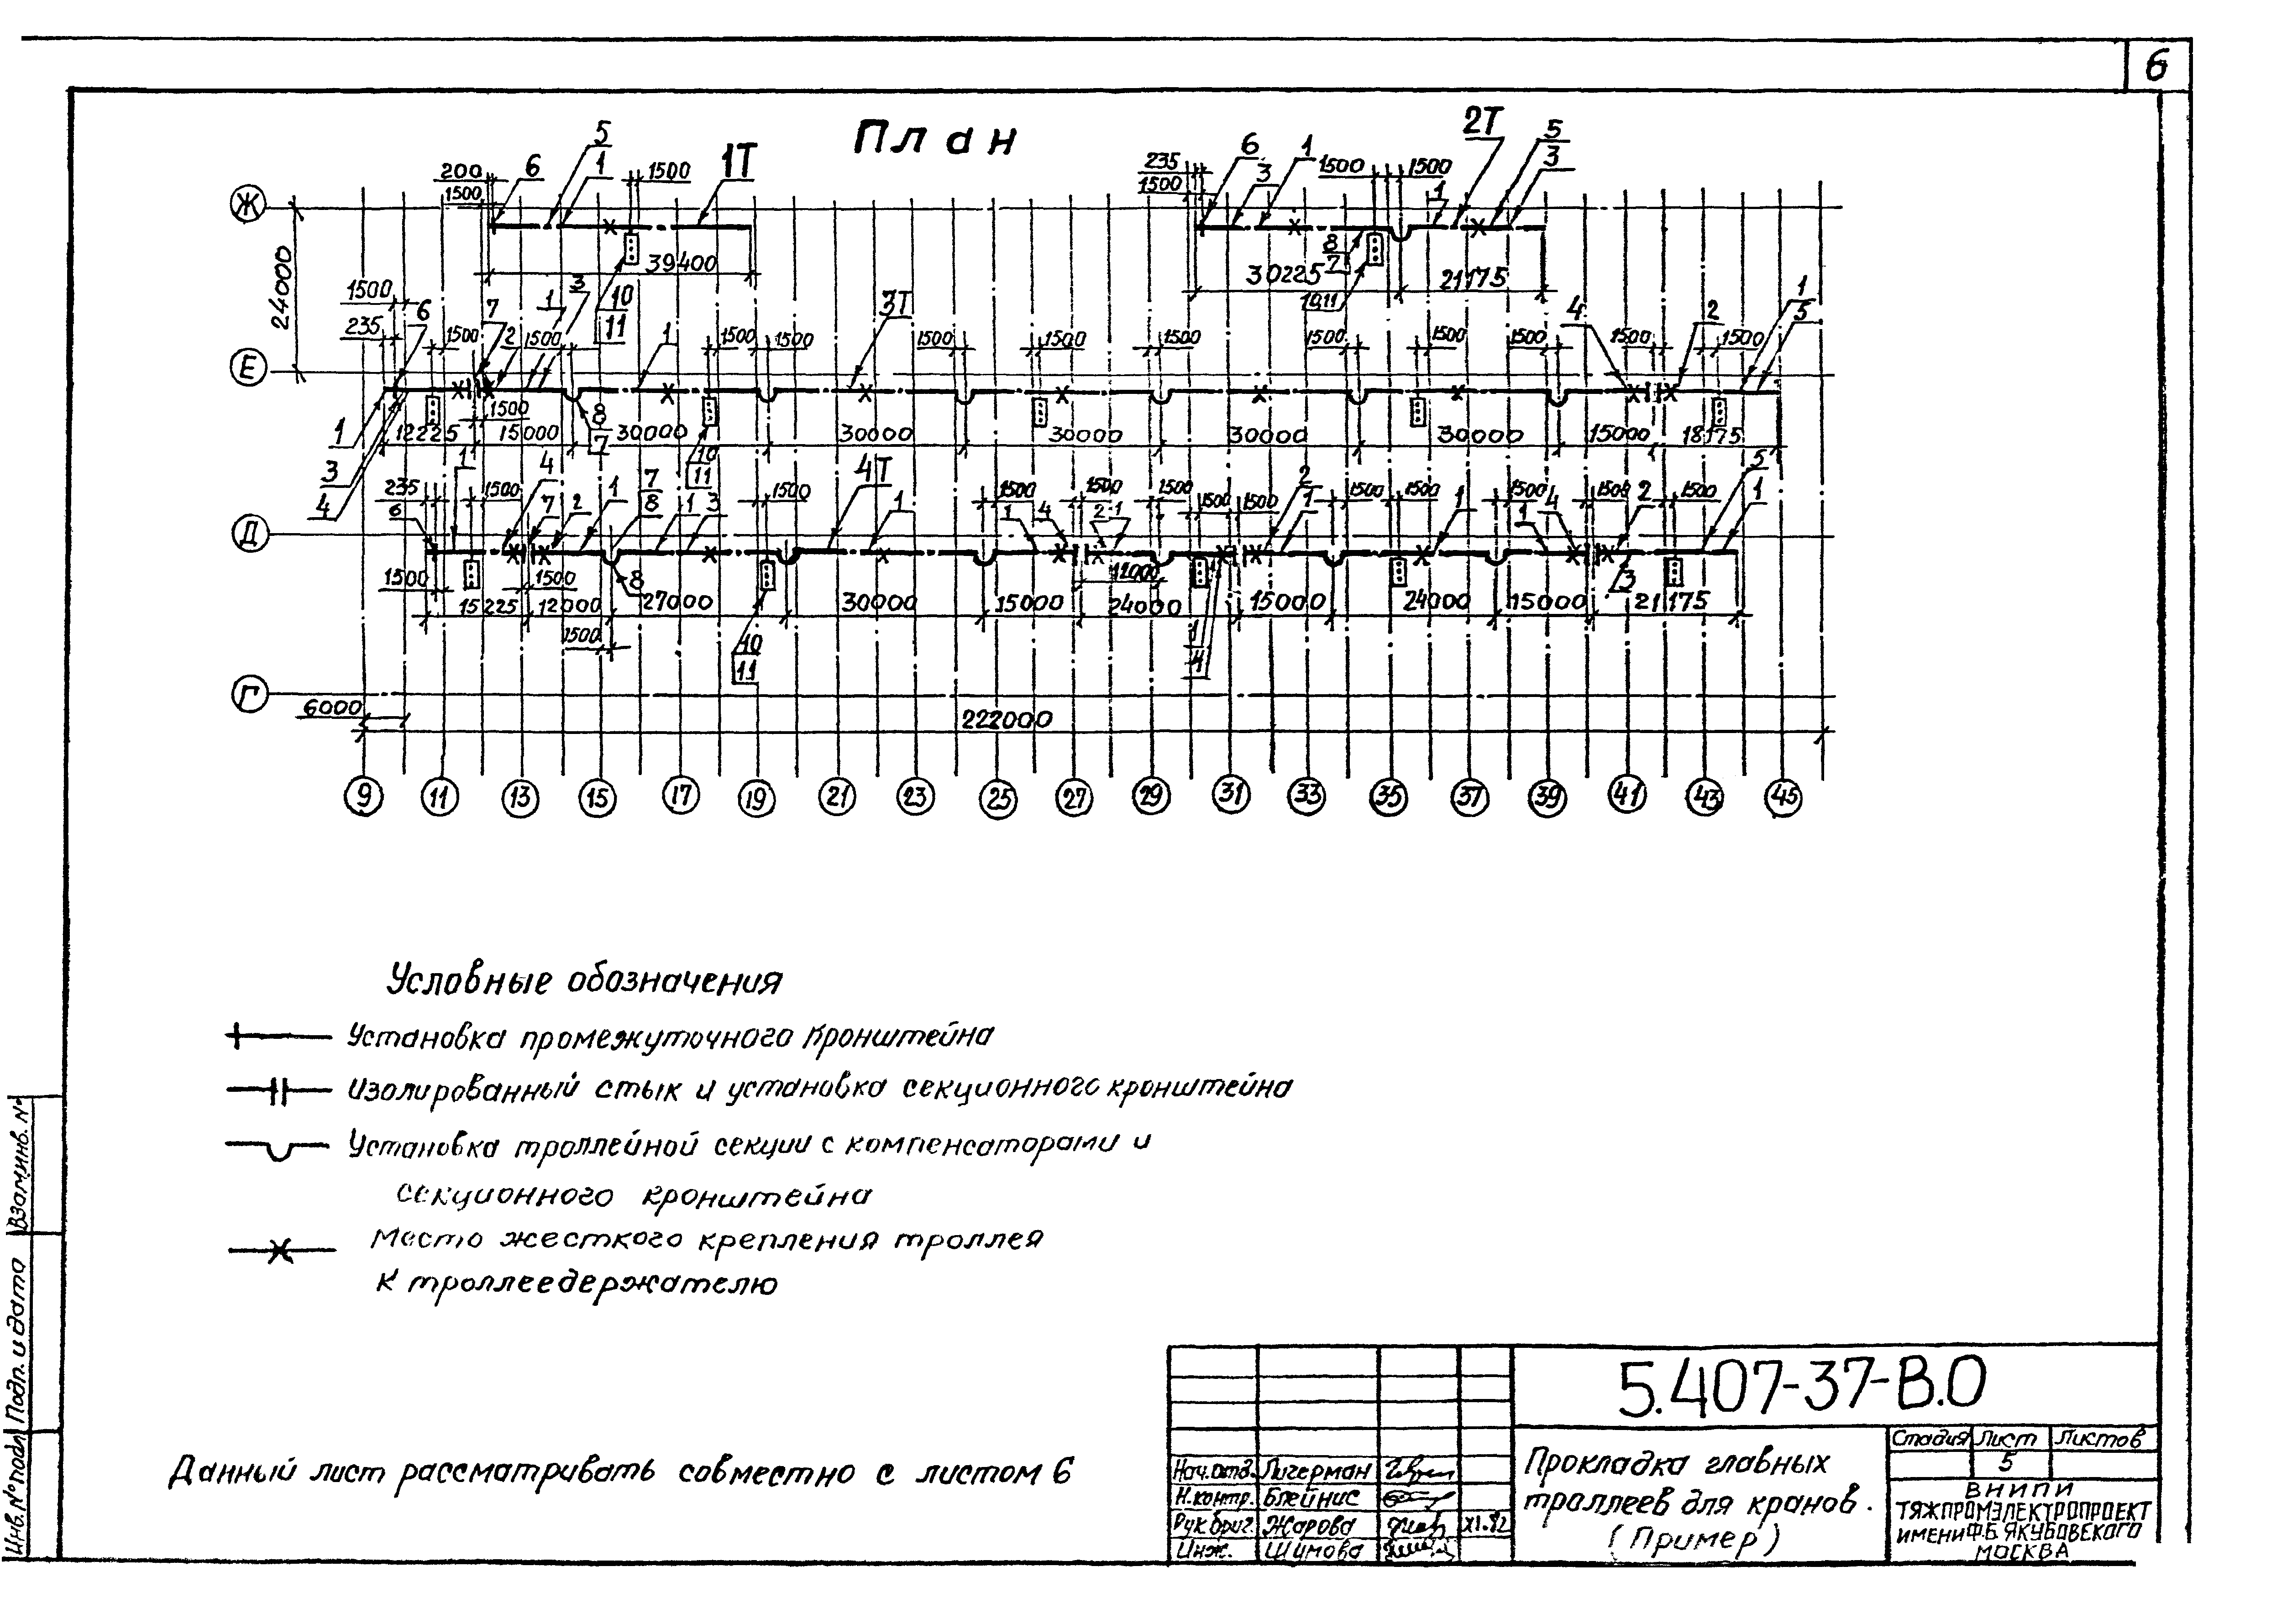 6
План
2Т
5
6
1
5
1
1Т
6
235
3
1500
1500
3
200
1500
1500
1500
1
Ж
8
7
39400
30225
21175
24000
10
11
10,11
1500
6
7
1
3
3Т
4
2
1
5
235
1500
2
1500
1
1500
1500
1500
1500
1500
1500
1500
1500
1500
1500
Е
1
1500
8
7
12225
15000
30000
30000
30000
30000
30000
15000
18175
10
11
3
4
1
4
7
8
4Т
2
5
235
1500
7
2
1
1
3
1500
1
1500
1500
1500
1500
1500
1
1500
1500
1
1500
4
1500
2
1500
1
6
1
4
2
1
1
Д
1500
1500
8
12000
3
15225
12000
27000
30000
15000
24000
15000
24000
15000
21175
1500
10
11
1
4
Г
6000
222000
9 11 13 15 17 19 21 23 25 27 29 31 33 35 37 39 41 43 45
Условные обозначения
Установка промежуточного кронштейна
Изолированный стык и установка секционного кронштейна
Установка троллейной секции с компенсаторами и
секционного кронштейна
Место жесткого крепления троллея
к троллеедержателю
Данный лист рассматривать совместно с листом 6
5.407-37-В.0
Прокладка главных
троллеев для кранов.
(Пример)
Стадия Лист Листов
5
ВНИПИ
ТЯЖПРОМЭЛЕКТРОПРОЕКТ
ИМЕНИ Ф.Б. ЯКУБОВСКОГО
МОСКВА
Нач.отд. Лигерман
Н.контр. Блейнис
Рук.бриг. Жарова XI.82
Инж. Шумова
Взам.инв. №
Подп. и дата
Инв. № подл.